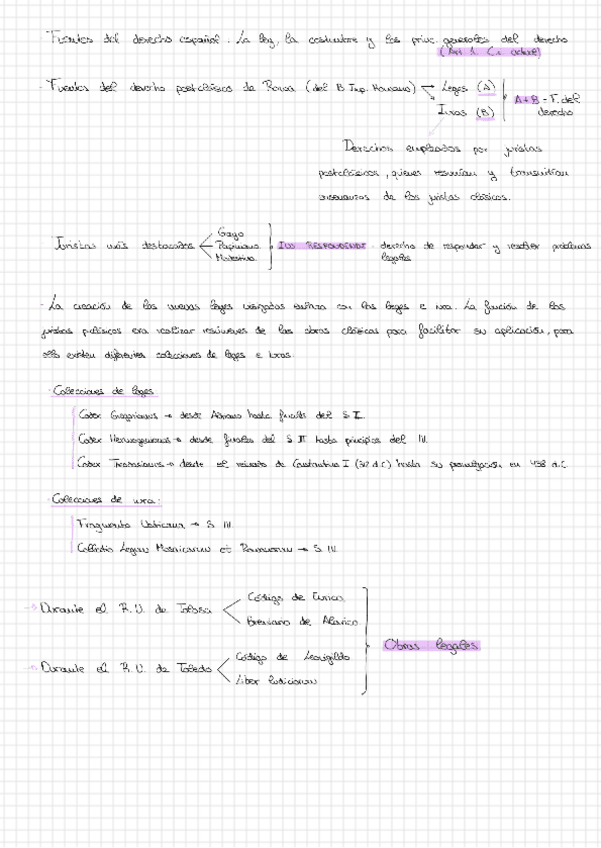 Fuentes del derecho español. La ley, la costumbre y los princ. generales del derecho
(Art 1. C.c actual)
- Fuentes del derecho postclásico de Roma (del B. Imp. Romano) → Leges (A)
Iuras (B)
A+B = F. del derecho
Derechos empleados por juristas
postclásicos, quienes resumían y transmitían
de los juristas clásicos.
Juristas más destacados
Gayo
Papiniano
Modestino
IUS RESPONDENDI. derecho de responder y resolver problemas
legales
- La creación de las nuevas leyes visigodas con las leges e iura. La función de los
juristas era realizar resúmenes de las obras clásicas para facilitar su aplicación, para
ello existen diferentes colecciones de leges e iuras.
Colecciones de leges
Codex Gregorianus → desde Adriano hasta finales del S
Codex Hermogenianus → desde finales del S III hasta principios del IV.
Codex Theodosianus → desde el reinado de Constantino I (312 d.C) hasta su promulgación en 438 d.C.
Colecciones de iura:
Fragmenta Vaticana → S. IV.
Collatio Legum Mosaicarum et Romanarum → S. IV.
→ Durante el R.V. de Tolosa
Código de Eurico.
Breviario de Alarico.
→ Durante el R.V. de Toledo
Código de Leovigildo
Liber Iudiciorum
Obras legales